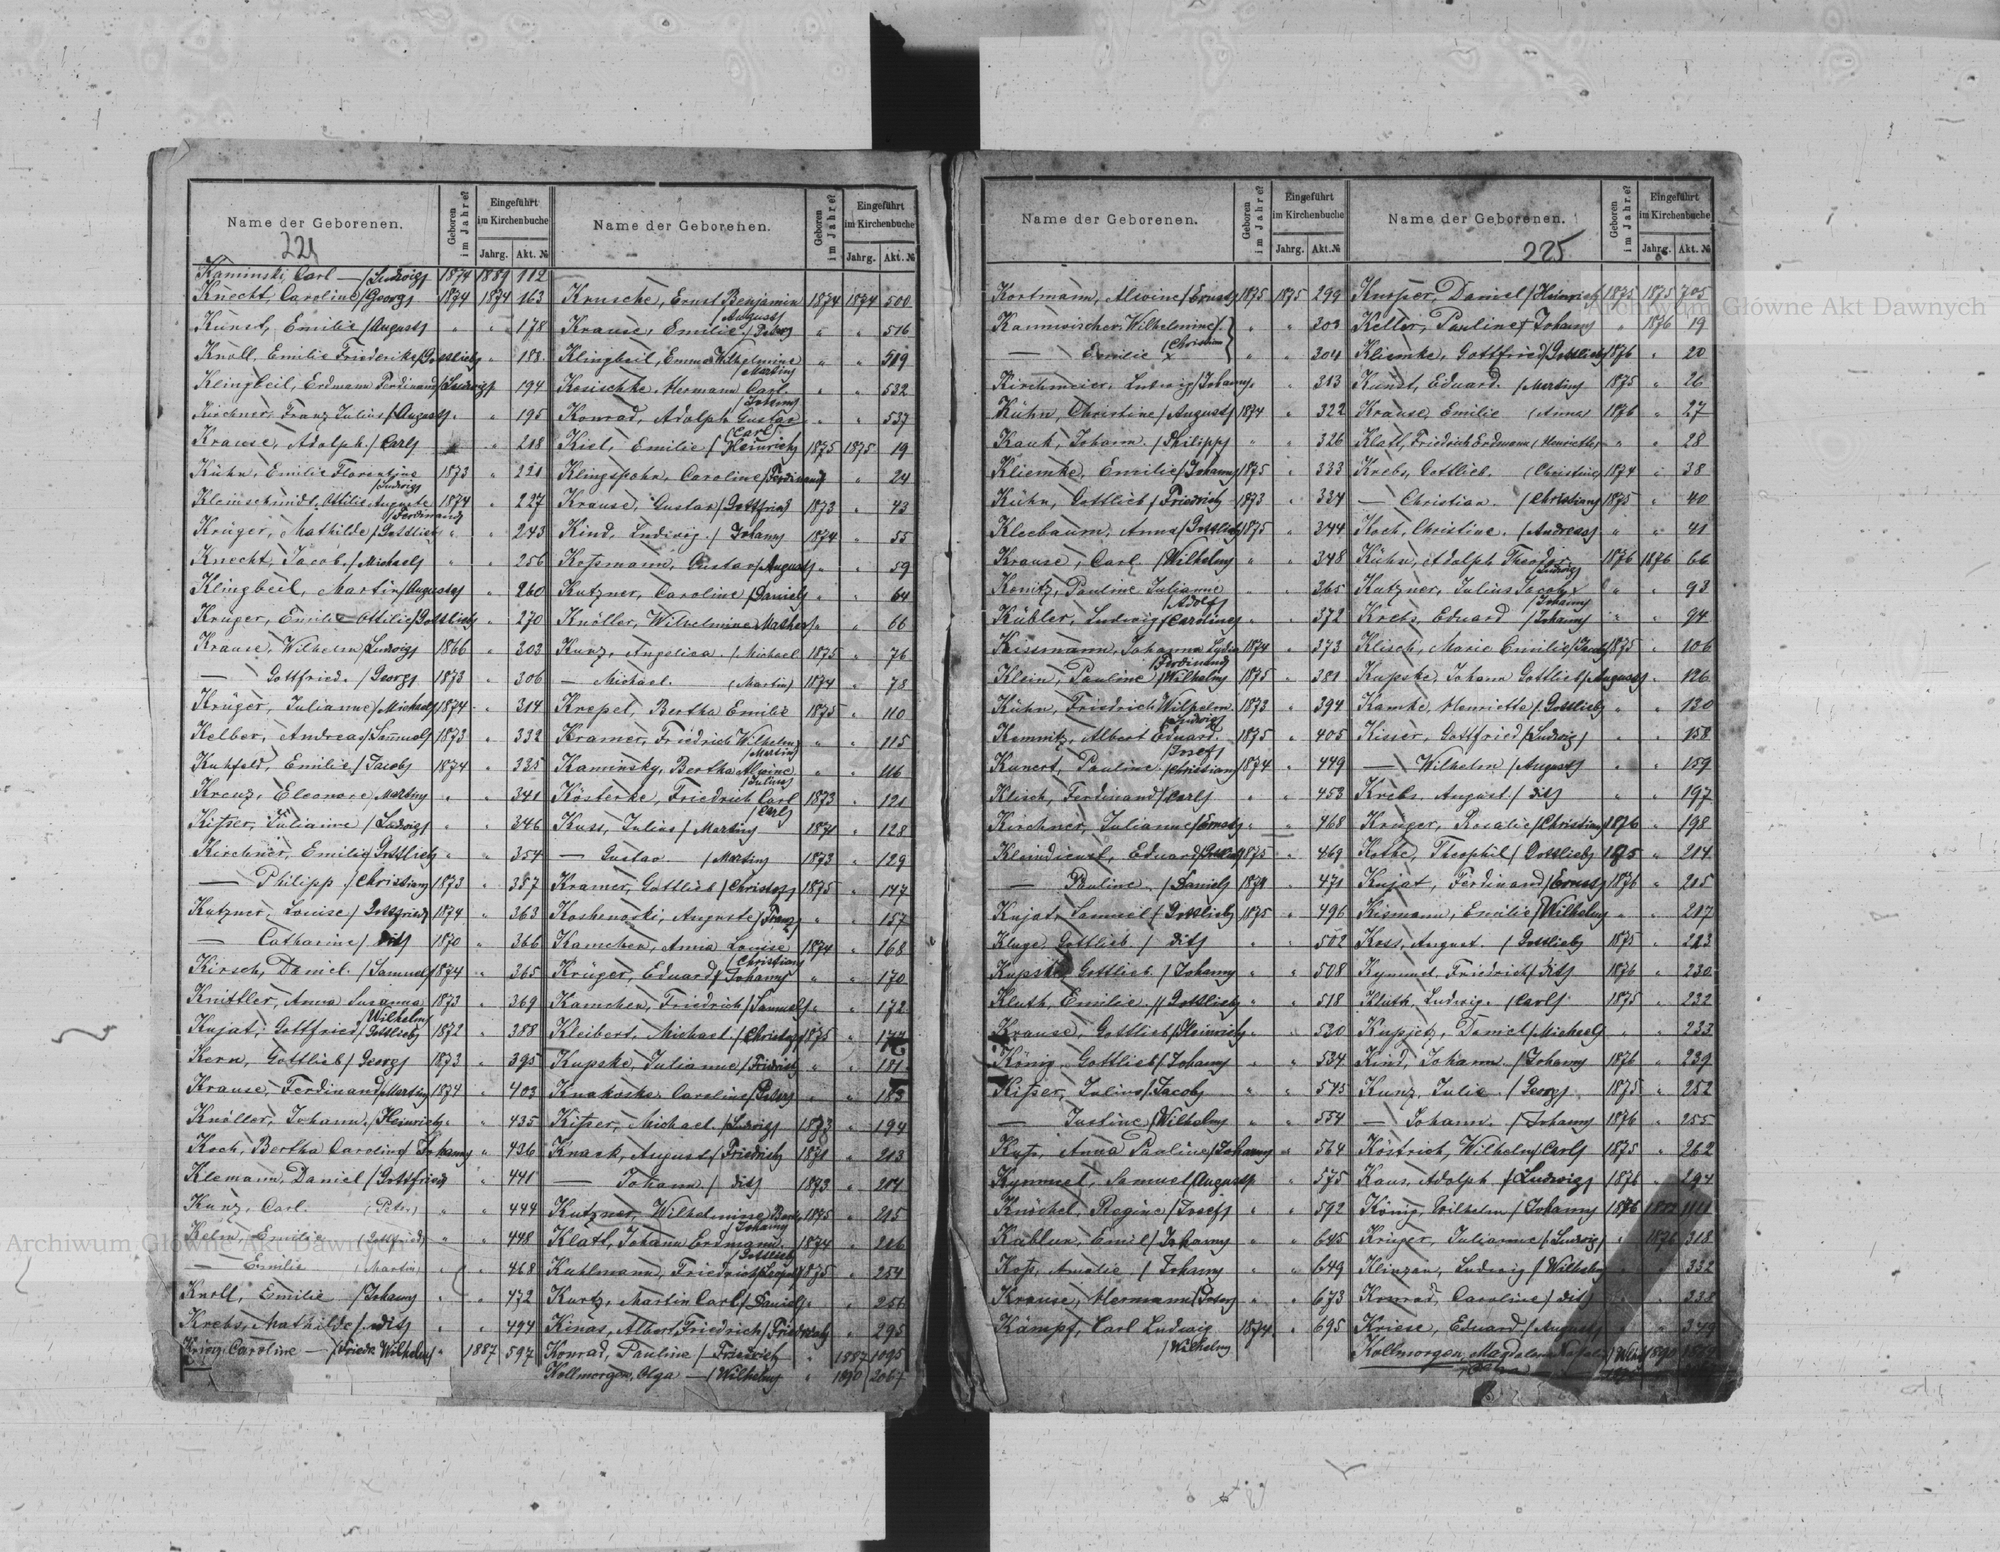 Name der Geborenen.
Geboren im Jahre?
Eingeführt im Kirchenbuche
Jahrg. Akt. №
Name der Geborenen.
Geboren im Jahre?
Eingeführt im Kirchenbuche
Jahrg. Akt. №
224
Kaminski, Carl — /Ludwig/ 1874 1889 112
Knecht, Caroline /Georg/ 1874 1874 163
Kunst, Emilie /August/ " " 178
Knoll, Emilie Friederike /Gottlieb/ " " 188
Klingbeil, Erdmann Ferdinand /Ludwig/ " 194
Kirchner, Franz Julius /August/ " " 195
Krause, Adolph /Carl/ " 218
Kühn, Emilie Florentine /Ludwig/ 1873 " 221
Kleinschmidt, Ottilie Auguste /Ferdinand/ 1874 " 227
Krüger, Mathilde /Gottlieb/ " " 243
Knecht, Jacob. /Michael/ " " 256
Klingbeil, Martin /August/ " " 260
Krüger, Emilie Ottilie /Gottlieb/ " " 270
Krause, Wilhelm /Ludwig/ 1866 " 303
— Gottfried. /Georg/ 1873 " 306
Krüger, Julianne /Michael/ 1874 " 314
Kelber, Andreas /Samuel/ 1873 " 332
Kuhfeld, Emilie /Jacob/ 1874 " 335
Kreuz, Eleonore /Martin/ " " 341
Kitzer, Julianne /Ludwig/ " " 346
Kirchner, Emilie /Gottlieb/ " " 354
— Philipp /Christian/ 1873 " 357
Kutzner, Louise /Gottfried/ 1874 " 363
— Catharine /dit/ 1870 " 366
Kirsch, Daniel. /Samuel/ 1874 " 365
Knittler, Anna Susanna /Wilhelm/ 1873 " 369
Kujat, Gottfried /Gottlieb/ 1872 " 388
Kern, Gottlieb /Georg/ 1873 " 395
Krause, Ferdinand /Martin/ 1874 " 403
Knöller, Johann. /Heinrich/ " " 435
Koch, Bertha Caroline /Johann/ " " 436
Klemann, Daniel /Gottfried/ " 441
Kunz, Carl. (Peter) " " 444
Kelm, Emilie (Gottfried) " " 448
— Emilie (Martin) " 468
Knoll, Emilie /Johann/ " " 472
Krebs, Mathilde /dit/ " " 494
Caroline — /Friedr. Wilhelm/ " 1887 597
Krusche, Ernst Benjamin /August/ 1874 1874 500
Krause, Emilie /Peter/ " " 516
Klingbeil, Emma Wilhelmine /Martin/ " " 519
Kesischke, Hermann Carl /Johann/ " " 532
Konrad, Adolph Gustav /Carl/ " " 537
Kiel, Emilie /Heinrich/ 1875 1875 19
Klingspohn, Caroline /Ferdinand/ " 24
Krause, Gustav /Gottfried/ 1873 " 43
Kind, Ludwig. /Johann/ 1874 " 55
Kossmann, Gustav /August/ " " 59
Kutzner, Caroline /Daniel/ " " 64
Knöller, Wilhelmine /Mathes/ " " 66
Kunz, Angelica. /Michael 1875 " 76
— Michael. (Martin) 1874 " 78
Krepel, Bertha Emilie 1875 " 110
Kramer, Friedrich Wilhelm /Martin/ " " 115
Kaminsky, Bertha Alwine /Julius/ " " 116
Kösterke, Friedrich Carl /Carl/ 1873 " 121
Kuss, Julius /Martin/ 1871 " 128
— Gustav /Martin/ 1873 " 129
Kramer, Gottlieb /Christof/ 1875 " 147
Koshenoski, Auguste /Franz/ " " 157
Kamchen, Anna Louise /Christian/ 1874 " 168
Krüger, Eduard /Johann/ " " 170
Kamchen, Friedrich /Samuel/ " " 172
Kleibert, Michael. /Christof/ 1875 "
Kupske, Julianne /Friedrich/ " " 181
Knakoske, Caroline /Peter/ " " 183
Kitzer, Michael /Ludwig/ 1873 " 194
Knack, August /Friedrich/ 1871 " 213
— Johann. /dit/ 1873 " 214
Kutzner, Wilhelmine 1875 " 215
Klatt, Johann Erdmann /Gottlieb/ 1874 " 216
Kuhlmann, Friedrich /Leopold/ 1875 " 254
Kurtz, Martin Carl /Daniel/ " " 256
Kinas, Albert Friedrich /Friedrich/ " 295
Konrad, Pauline /Friedrich/ " 1887 1095
Kollmorgen, Olga — /Wilhelm/ " 1890 2067
Name der Geborenen.
Geboren im Jahre?
Eingeführt im Kirchenbuche
Jahrg. Akt. №
Name der Geborenen.
Geboren im Jahre?
Eingeführt im Kirchenbuche
Jahrg. Akt. №
225
Kortmann, Alwine /Ernst/ 1875 1875 299
Kannwischer, Wilhelmine /Christian/ " " 303
— Emilie " " 304
Kirchmeier, Ludwig /Johann/ " " 313
Kühn, Christine /August/ 1874 " 322
Kauk, Johann. /Philipp/ " " 326
Kliemke, Emilie /Johann/ 1875 " 333
Kühn, Gottlieb /Friedrich/ 1873 " 334
Kleebaum, Anna /Gottlieb/ 1875 " 344
Krause, Carl. /Wilhelm/ " " 348
Konitz, Pauline Julianne /Adolf/ " " 365
Kübler, Ludwig /Caroline/ " " 372
Kissmann, Johanna Lydia /Ferdinand/ 1874 " 373
Klein, Pauline /Wilhelm/ 1875 " 381
Kühn, Friedrich Wilhelm /Ludwig/ 1873 " 394
Kemnitz, Albert Eduard. /Josef/ 1875 " 405
Kunert, Pauline. /Christian/ 1874 " 449
Klisch, Ferdinand /Carl/ " " 453
Kirchner, Julianne /Ernst/ " " 468
Kleindienst, Eduard /Gottlieb/ 1875 " 469
— Pauline. /Daniel/ 1874 " 471
Kujat, Samuel /Gottlieb/ 1875 " 496
Kluge, Gottlieb /dit/ " " 502
Kupske, Gottlieb. /Johann/ " " 508
Kluth, Emilie /Gottlieb/ " " 518
Krause, Gottlieb /Heinrich/ " " 530
König, Gottlieb /Johann/ " " 534
Kitzer, Julius /Jacob/ " " 545
— Justine /Wilhelm/ " " 554
Kutz, Anna Pauline /Johann/ " " 564
Kymmel, Samuel /August/ " " 575
Knöchel, Regine /Josef/ " " 592
Käblun, Emil /Johann/ " " 645
Kotz, Amalie. /Johann/ " " 649
Krause, Hermann /Peter/ " " 673
Kämpf, Carl Ludwig /Wilhelm/ 1874 " 695
Knosper, Daniel /Heinrich/ 1875 1875 705
Keller, Pauline /Johann/ " 1876 19
Kliemke, Gottfried /Gottlieb/ 1876 " 20
Kunst, Eduard. /Martin/ 1875 " 26
Krause, Emilie (Anna 1876 " 27
Klatt, Friedrich Erdmann (Henriette) " " 28
Krebs, Gottlieb. (Christine) 1874 " 38
— Christian. /Christian/ 1875 " 40
Koch, Christine. /Andreas/ " " 41
Kühn, Adolph Theodor /Ludwig/ 1876 1876 66
Kutzner, Julius Jacob /Johann/ " " 93
Krebs, Eduard /Johann/ " " 94
Klisch, Marie Emilie /Jacob/ 1875 " 106
Kupske, Johann Gottlieb /August/ " 126
Kamke, Henriette /Gottlieb/ " " 130
Kisser, Gottfried /Ludwig/ " " 158
— Wilhelm /August/ " " 159
Krebs, August. /dit/ " " 197
Krüger, Rosalie /Christian/ 1876 " 198
Kothe, Theophil /Gottlieb/ 1875 " 214
Kujat, Ferdinand /Ernst/ 1876 " 215
Kismann, Emilie /Wilhelm/ " " 217
Koss, August. /Gottlieb/ 1875 " 223
Kymmel, Friedrich /dit/ 1876 " 230
Kluth, Ludwig. /Carl/ 1875 " 232
Kupjetz, Daniel /Michael/ " " 233
Kind, Johann. /Johann/ 1876 " 239
Kunz, Julie. /Georg/ 1875 " 252
— Johann. /Johann/ 1876 " 255
Köstrich, Wilhelm /Carl/ 1875 " 262
Kaus, Adolph /Ludwig/ 1876 " 294
König, Wilhelm /Johann/ 1876
Krüger, Julianne /Ludwig/ " 1876 318
Klinzan, Ludwig /Wilhelm/ " " 332
Konrad, Caroline /dit/ 338
Kriese, Eduard /August/ " 349
Kollmorgen, Magdalena
Archiwum Główne Akt Dawnych
Archiwum Główne Akt Dawnych